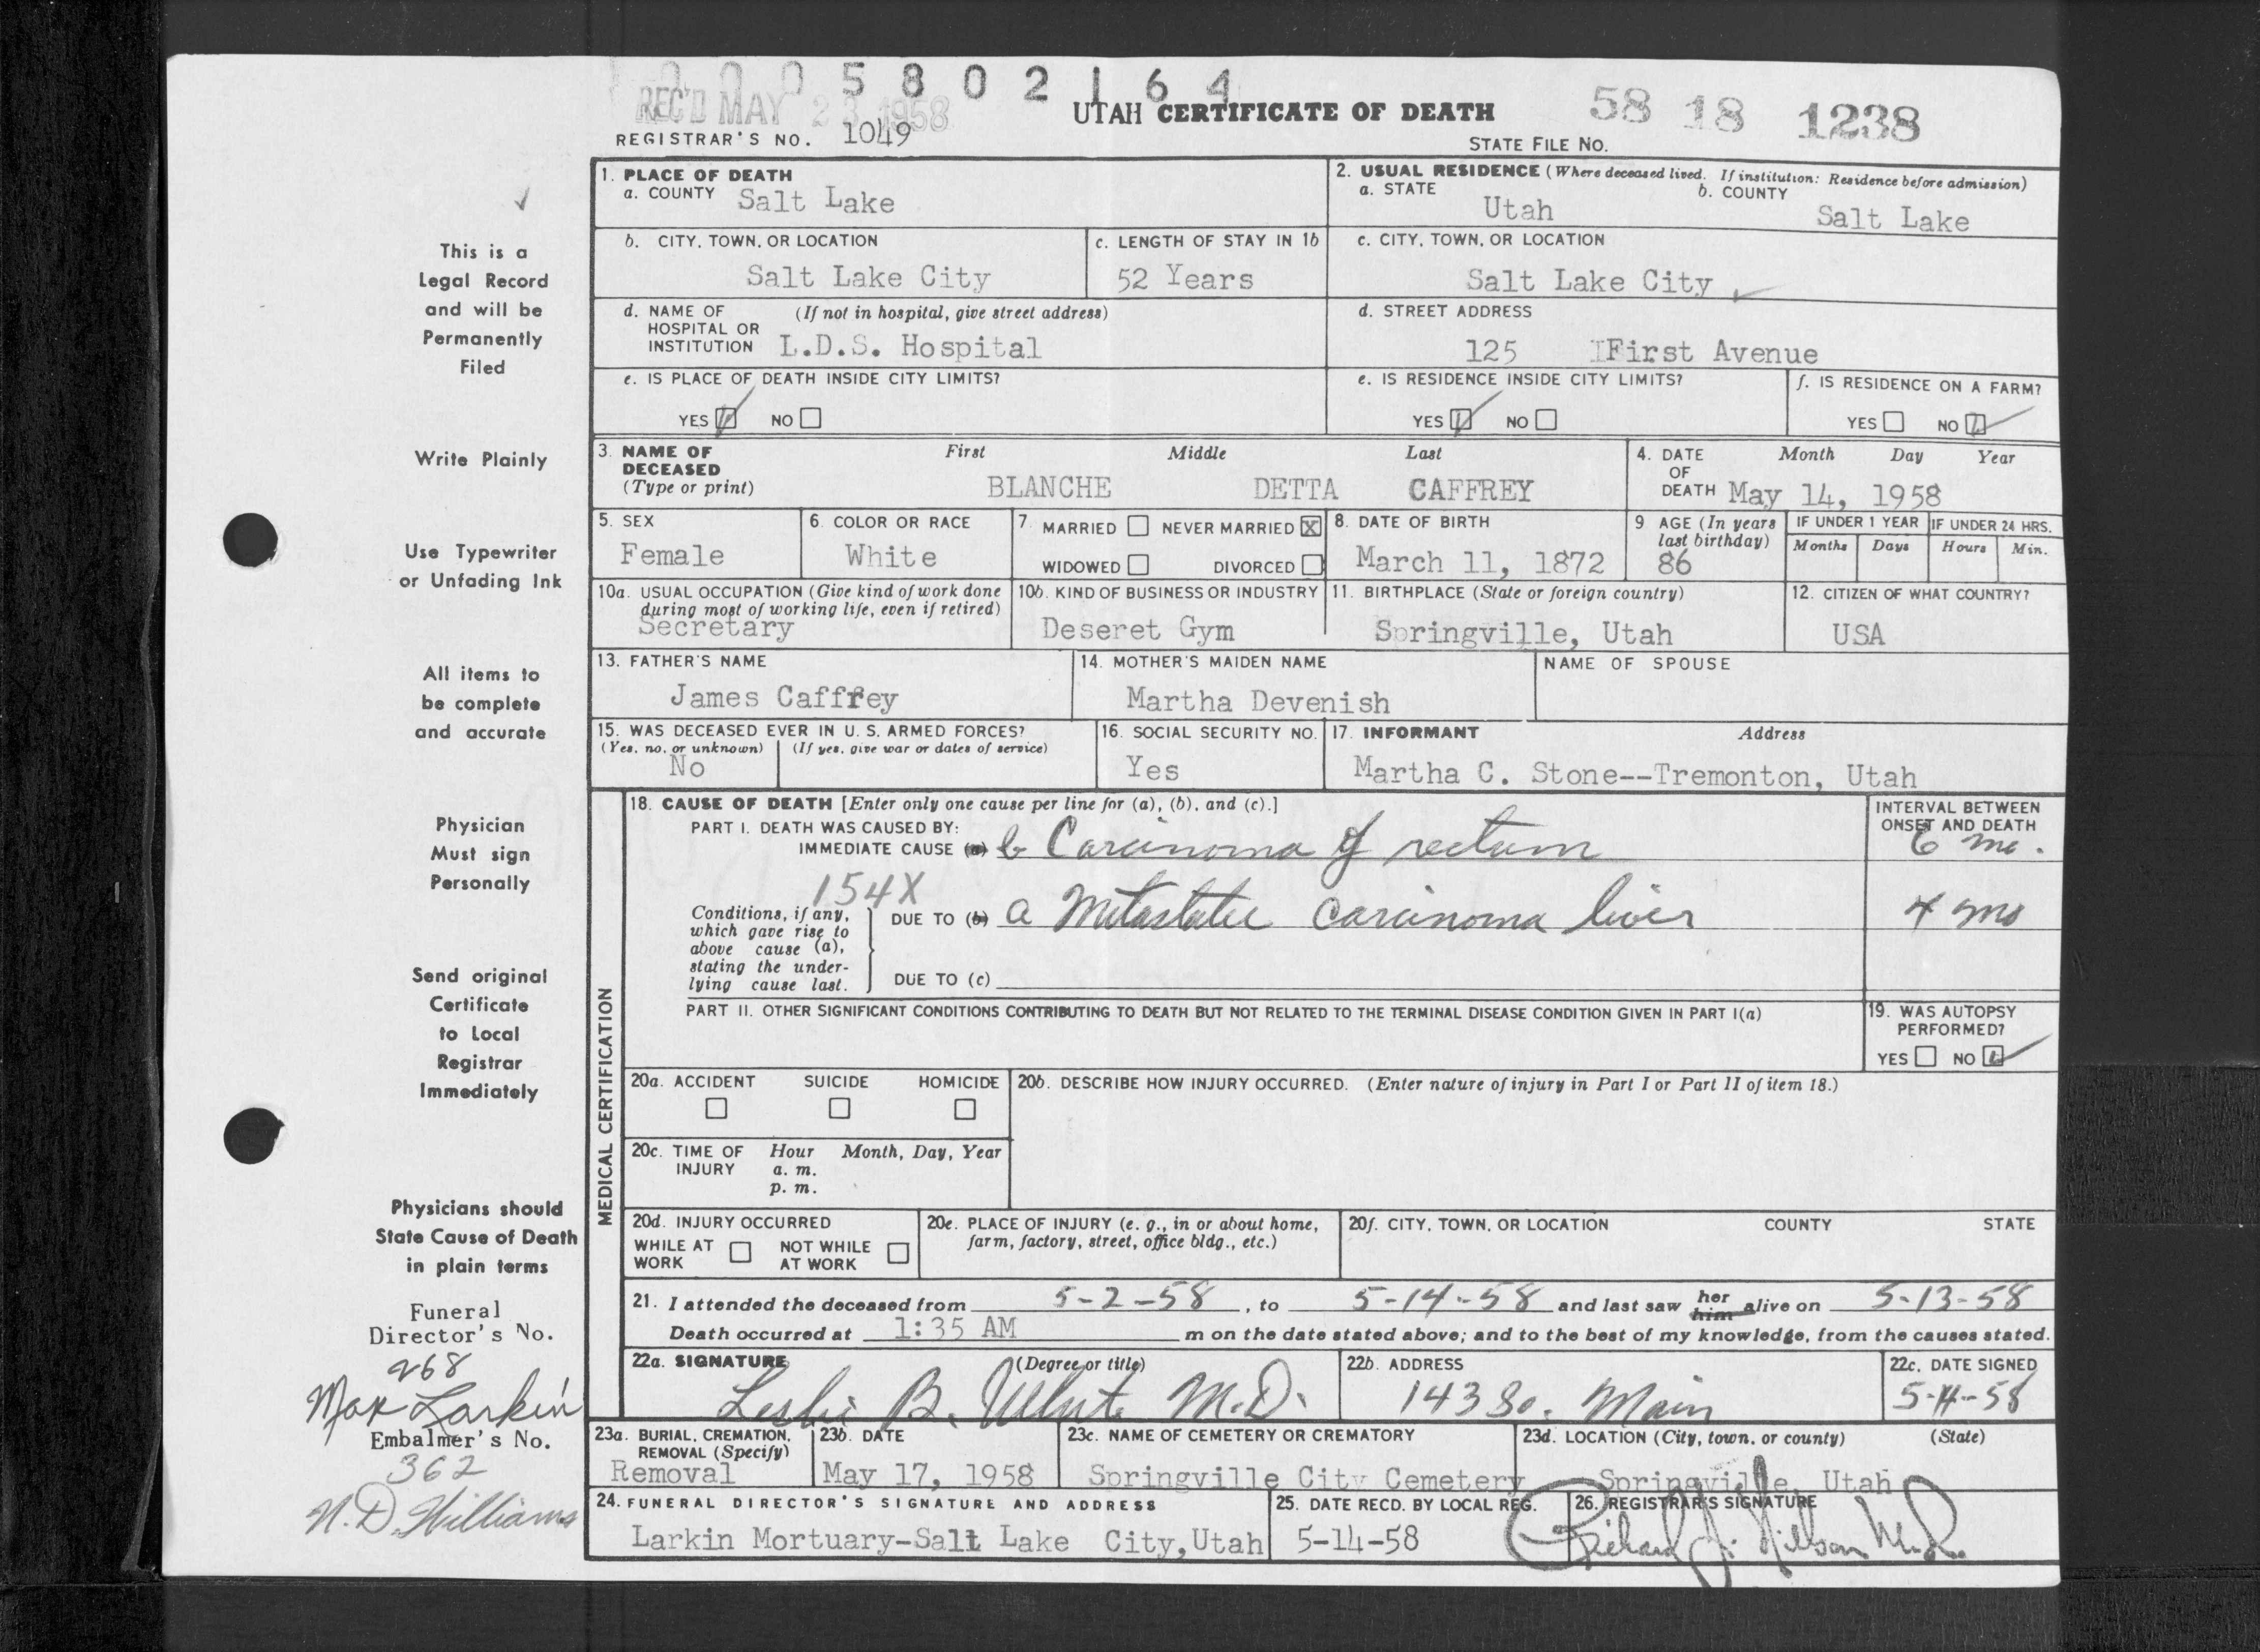 0005802164
REC'D MAY 23 1958
UTAH CERTIFICATE OF DEATH
58 18 1238
REGISTRAR'S NO. 1049
STATE FILE NO.
This is a
Legal Record
and will be
Permanently
Filed
Write Plainly
Use Typewriter
or Unfading Ink
All items to
be complete
and accurate
Physician
Must sign
Personally
Send original
Certificate
to Local
Registrar
Immediately
Physicians should
State Cause of Death
in plain terms
Funeral
Director's No.
268
Max Larkin
Embalmer's No.
362
N.D. Williams
1. PLACE OF DEATH
a. COUNTY Salt Lake
2. USUAL RESIDENCE (Where deceased lived. If institution: Residence before admission)
a. STATE Utah b. COUNTY Salt Lake
b. CITY, TOWN, OR LOCATION Salt Lake City
c. LENGTH OF STAY IN 1b 52 Years
c. CITY, TOWN, OR LOCATION Salt Lake City
d. NAME OF (If not in hospital, give street address)
HOSPITAL OR
INSTITUTION L.D.S. Hospital
d. STREET ADDRESS
125 First Avenue
e. IS PLACE OF DEATH INSIDE CITY LIMITS?
YES NO
e. IS RESIDENCE INSIDE CITY LIMITS?
YES NO
f. IS RESIDENCE ON A FARM?
YES NO
3. NAME OF DECEASED (Type or print)
First Middle Last
BLANCHE DETTA CAFFREY
4. DATE OF DEATH Month Day Year
May 14, 1958
5. SEX
Female
6. COLOR OR RACE
White
7. MARRIED NEVER MARRIED X
WIDOWED DIVORCED
8. DATE OF BIRTH
March 11, 1872
9 AGE (In years last birthday)
86
IF UNDER 1 YEAR IF UNDER 24 HRS.
Months Days Hours Min.
10a. USUAL OCCUPATION (Give kind of work done
during most of working life, even if retired)
Secretary
10b. KIND OF BUSINESS OR INDUSTRY
Deseret Gym
11. BIRTHPLACE (State or foreign country)
Springville, Utah
12. CITIZEN OF WHAT COUNTRY?
USA
13. FATHER'S NAME
James Caffrey
14. MOTHER'S MAIDEN NAME
Martha Devenish
NAME OF SPOUSE
15. WAS DECEASED EVER IN U. S. ARMED FORCES?
(Yes, no, or unknown) (If yes, give war or dates of service)
No
16. SOCIAL SECURITY NO.
Yes
17. INFORMANT Address
Martha C. Stone--Tremonton, Utah
MEDICAL CERTIFICATION
18. CAUSE OF DEATH [Enter only one cause per line for (a), (b), and (c).]
PART I. DEATH WAS CAUSED BY:
IMMEDIATE CAUSE (a) b Carcinoma of rectum
INTERVAL BETWEEN
ONSET AND DEATH
6 mo.
154X
Conditions, if any,
which gave rise to
above cause (a),
stating the under-
lying cause last.
DUE TO (b) a Metastatic carcinoma liver
4 mo
DUE TO (c)
PART II. OTHER SIGNIFICANT CONDITIONS CONTRIBUTING TO DEATH BUT NOT RELATED TO THE TERMINAL DISEASE CONDITION GIVEN IN PART I(a)
19. WAS AUTOPSY
PERFORMED?
YES NO
20a. ACCIDENT SUICIDE HOMICIDE
20b. DESCRIBE HOW INJURY OCCURRED. (Enter nature of injury in Part I or Part II of item 18.)
20c. TIME OF INJURY Hour Month, Day, Year
a. m.
p. m.
20d. INJURY OCCURRED
WHILE AT WORK NOT WHILE AT WORK
20e. PLACE OF INJURY (e. g., in or about home,
farm, factory, street, office bldg., etc.)
20f. CITY, TOWN, OR LOCATION COUNTY STATE
21. I attended the deceased from 5-2-58, to 5-14-58 and last saw her him alive on 5-13-58
Death occurred at 1:35 AM m on the date stated above; and to the best of my knowledge, from the causes stated.
22a. SIGNATURE (Degree or title)
Leslie B. White M.D.
22b. ADDRESS
143 So. Main
22c. DATE SIGNED
5-14-58
23a. BURIAL, CREMATION,
REMOVAL (Specify)
Removal
23b. DATE
May 17, 1958
23c. NAME OF CEMETERY OR CREMATORY
Springville City Cemetery
23d. LOCATION (City, town, or county) (State)
Springville, Utah
24. FUNERAL DIRECTOR'S SIGNATURE AND ADDRESS
Larkin Mortuary-Salt Lake City, Utah
25. DATE RECD. BY LOCAL REG.
5-14-58
26. REGISTRAR'S SIGNATURE
Richard